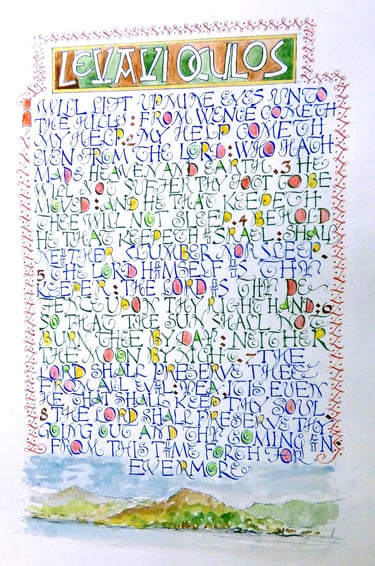 LEVAVI OCULOS
I WILL LIFT UP MINE EYES UNTO
THE HILLS: FROM WENCE COMETH
MY HELP. 2 MY HELP COMETH
EVEN FROM THE LORD: WHO HATH
MADE HEAVEN AND EARTH. 3 HE
WILL NOT SUFFER THY FOOT TO BE
MOVED: AND HE THAT KEEPETH
THEE WILL NOT SLEEP. 4 BEHOLD
HE THAT KEEPETH ISRAEL: SHALL
NEITHER SLUMBER NOR SLEEP.
5 THE LORD HIMSELF IS THY
KEEPER: THE LORD IS THY DE
FENCE UPON THY RIGHT HAND; 6
SO THAT THE SUN SHALL NOT
BURN THEE BY DAY: NEITHER
THE MOON BY NIGHT. 7 THE
LORD SHALL PRESERVE THEE
FROM ALL EVIL: YEA, IT IS EVEN
HE THAT SHALL KEEP THY SOUL.
8 THE LORD SHALL PRESERVE THY
GOING OUT AND THY COMING IN:
FROM THIS TIME FORTH FOR
EVERMORE.